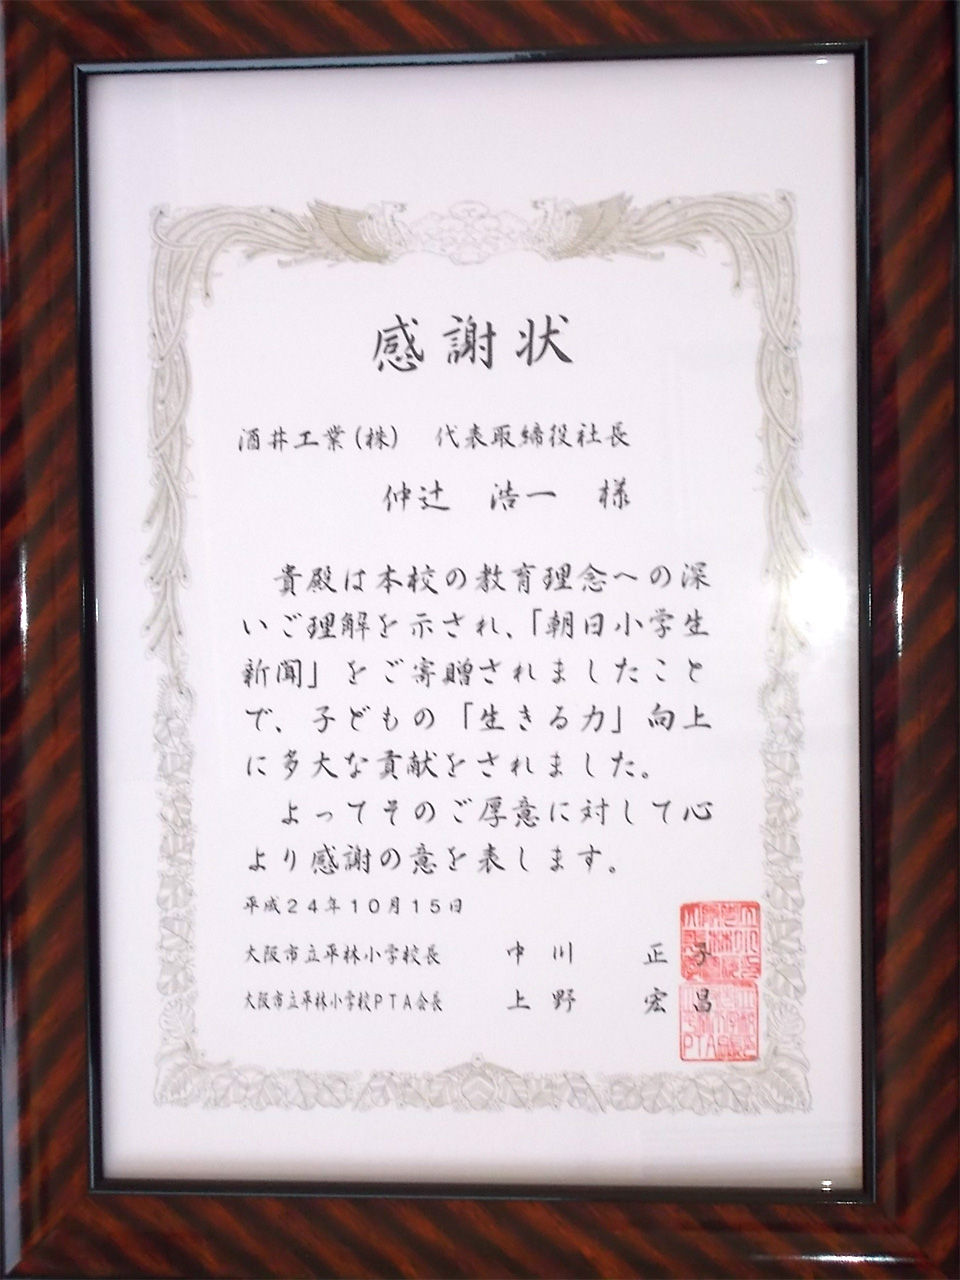 感謝状
酒井工業(株)　代表取締役社長
仲辻　浩一　様
貴殿は本校の教育理念への深
いご理解を示され、「朝日小学生
新聞」をご寄贈されましたこと
で、子どもの「生きる力」向上
に多大な貢献をされました。
よってそのご厚意に対して心
より感謝の意を表します。
平成２４年１０月１５日
大阪市立平林小学校長　中川　正子
大阪市立平林小学校ＰＴＡ会長　上野　宏昌